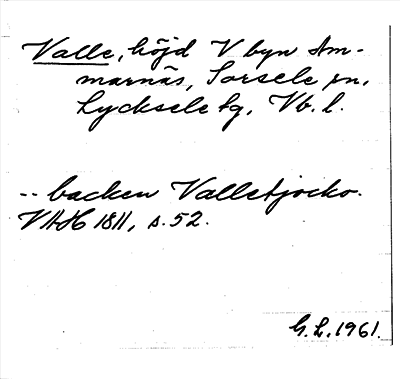 Valle, höjd V byn Am-
marnäs, Sorsele sn,
Lycksele tg, Vb. l.
-- backen Valletjocko.
VHH 1811, s. 52.
G. L. 1961.